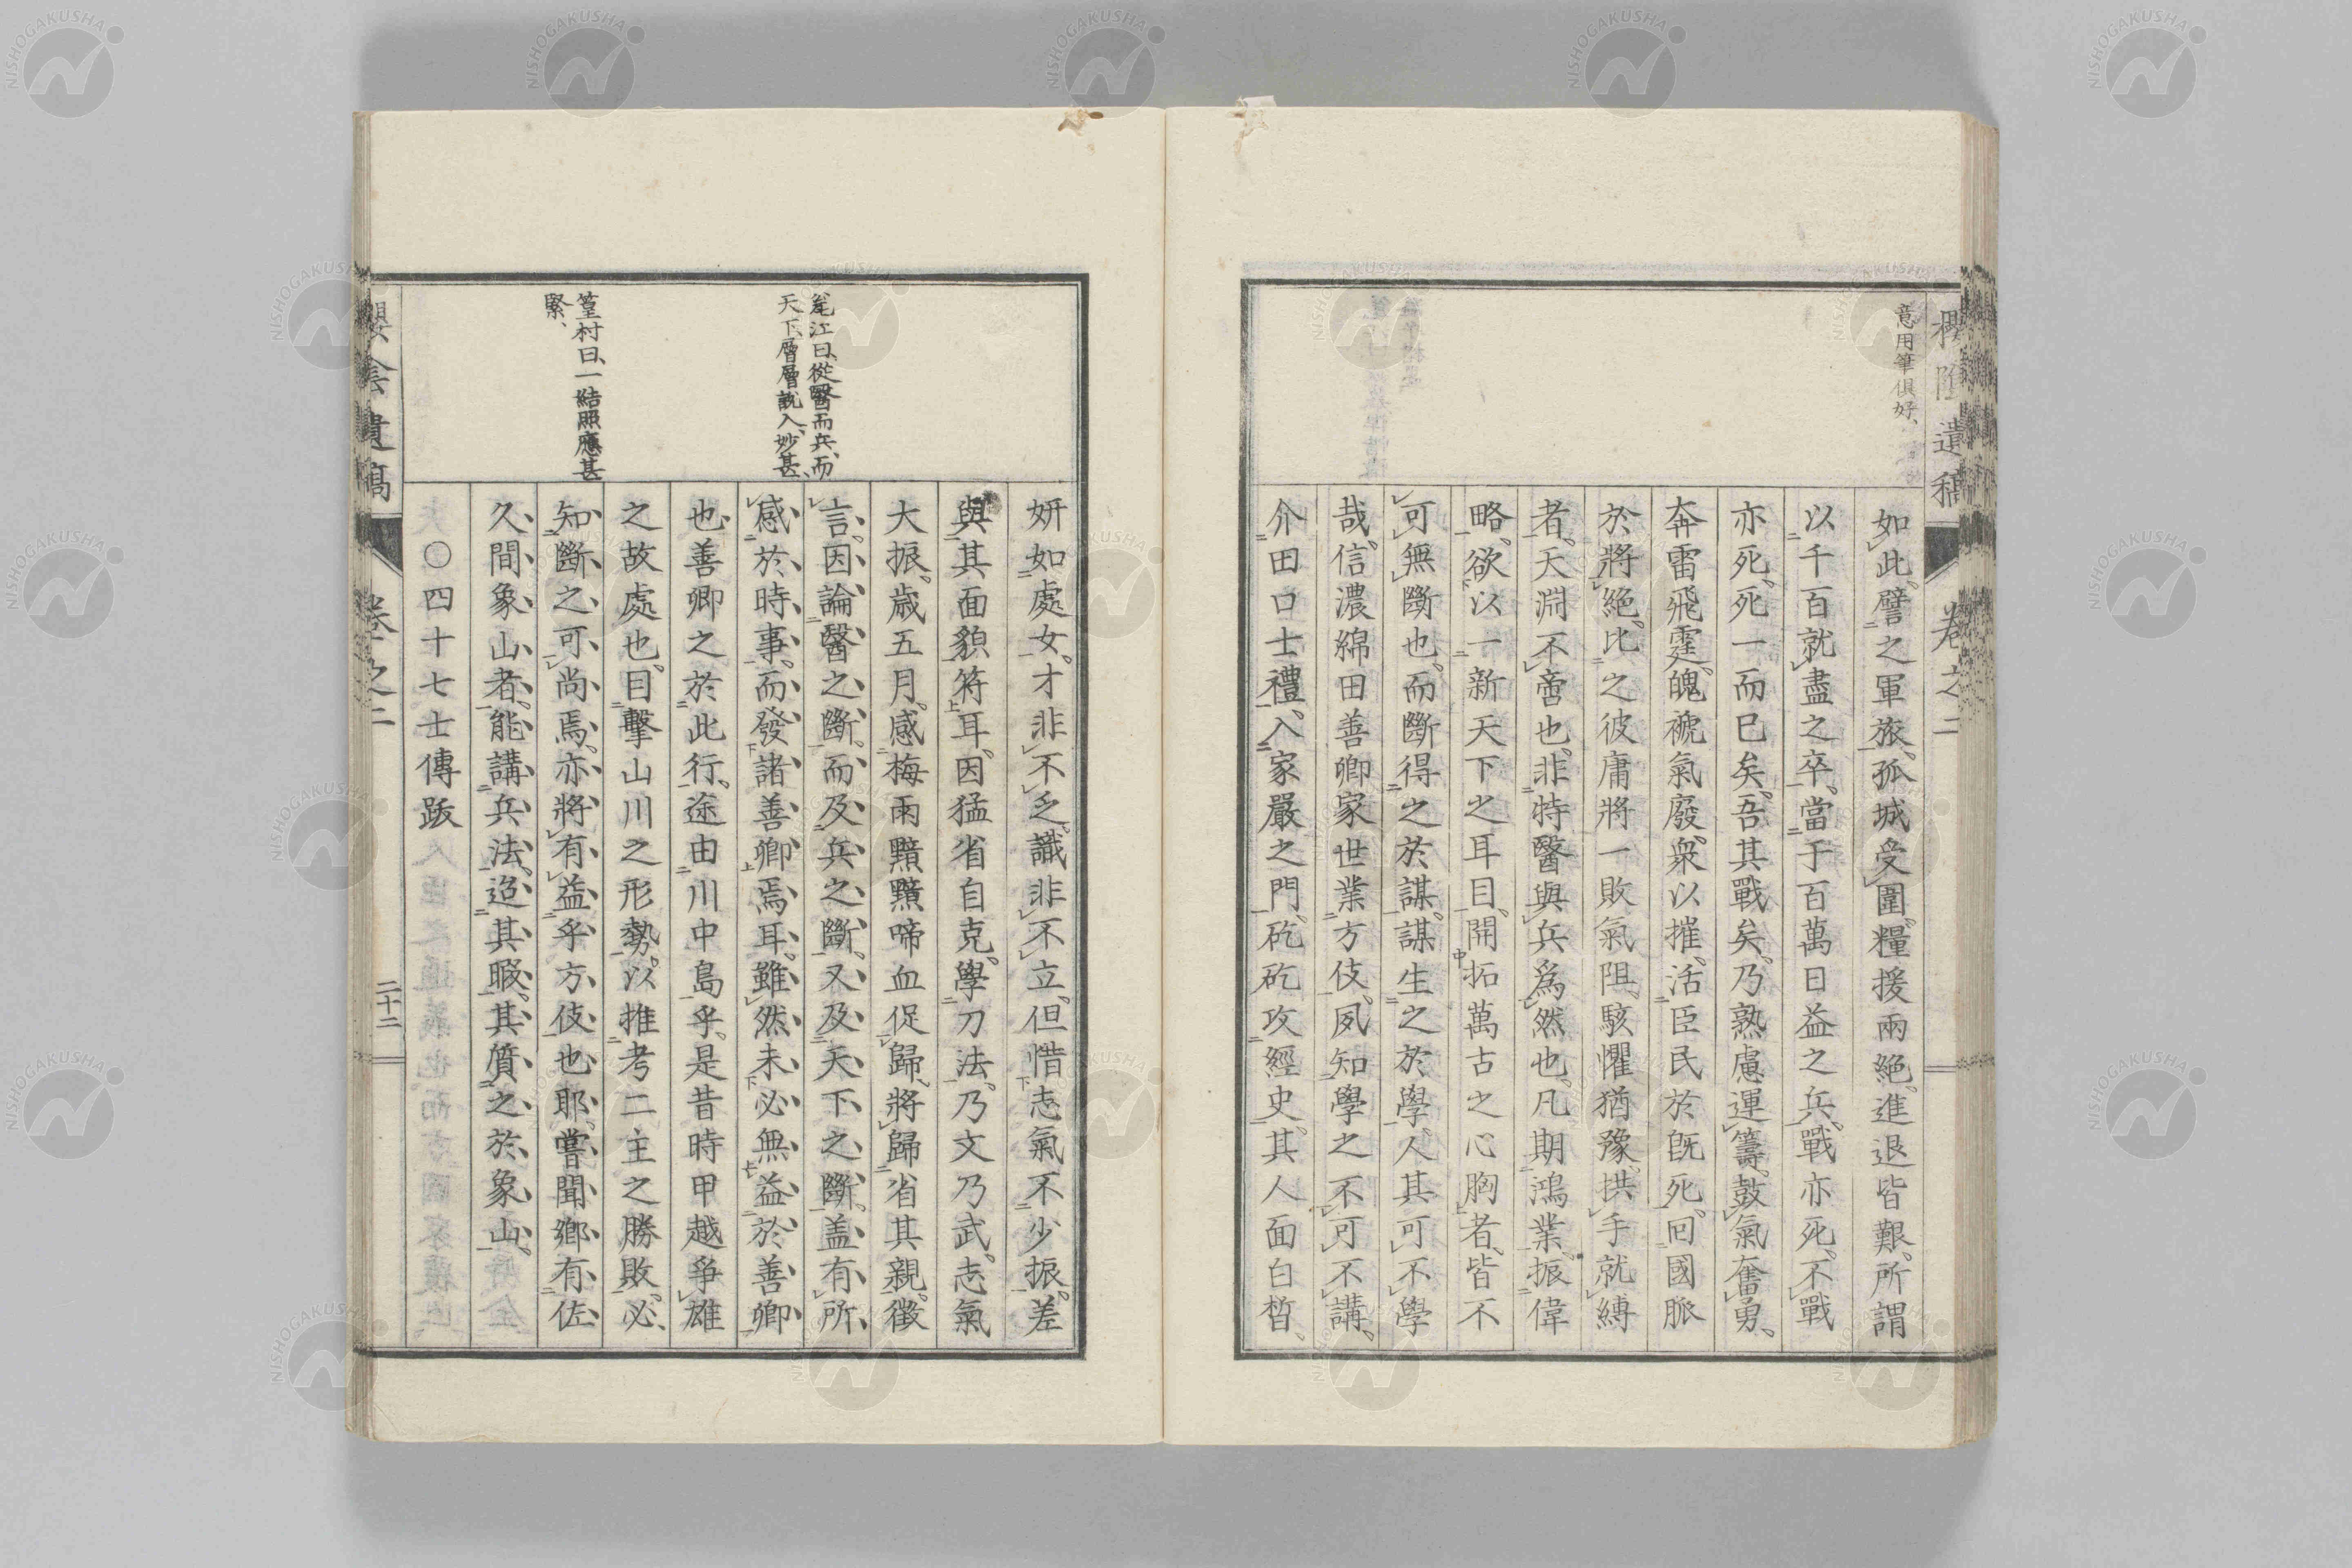 櫻陰遺稿 卷之二
意用筆俱好、
如此。譬之軍旅、孤城受圍。糧援兩絕。進退皆艱。所謂
以千百就盡之卒。當于百萬日益之兵、戰亦死。不戰
亦死、死一而已矣。吾其戰矣。乃熟慮運籌。鼓氣奮勇。
奔雷飛霆、魄褫氣廢。衆以摧、活臣民於旣死、回國脈
於將絕。比之彼庸將一敗氣阻、駭懼猶豫、拱手就縛
者。天淵不啻也。非特醫與兵爲然也。凡期鴻業。振偉
略、欲以一新天下之耳目、開拓萬古之心胸者、皆不
可無斷也。而斷得之於謀。謀生之於學。人其可不學
哉。信濃綿田善卿家世業方伎。夙知學之不可不講。
介田口士禮、入家嚴之門、矻矻攻經史。其人面白晳、
妍如處女。才非不乏。識非不立。但惜志氣不少振。差
與其面貌符耳。因猛省自克。學刀法。乃文乃武。志氣
大振。歲五月。感梅雨黯黯啼血促歸、將歸省其親。徵
言。因論醫之斷。而及兵之斷。又及天下之斷。盖有所
感於時事。而發諸善卿焉耳。雖然未必無益於善卿
也。善卿之於此行。途由川中島乎。是昔時甲越爭雄
之故處也。目擊山川之形勢。以推考二主之勝敗。必
知斷之可尚焉。亦將有益乎方伎也耶。嘗聞鄕有佐
久間象山者。能講兵法。迨其暇。其質之於象山。
○四十七士傳跋
毟江曰、從醫而兵、而
天下、層層說入、妙甚、
篁村曰、一結照應甚
緊、
櫻陰遺稿 卷之二 二十二